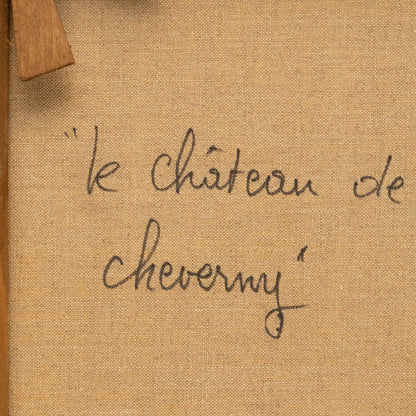 "le château de
cheverny"